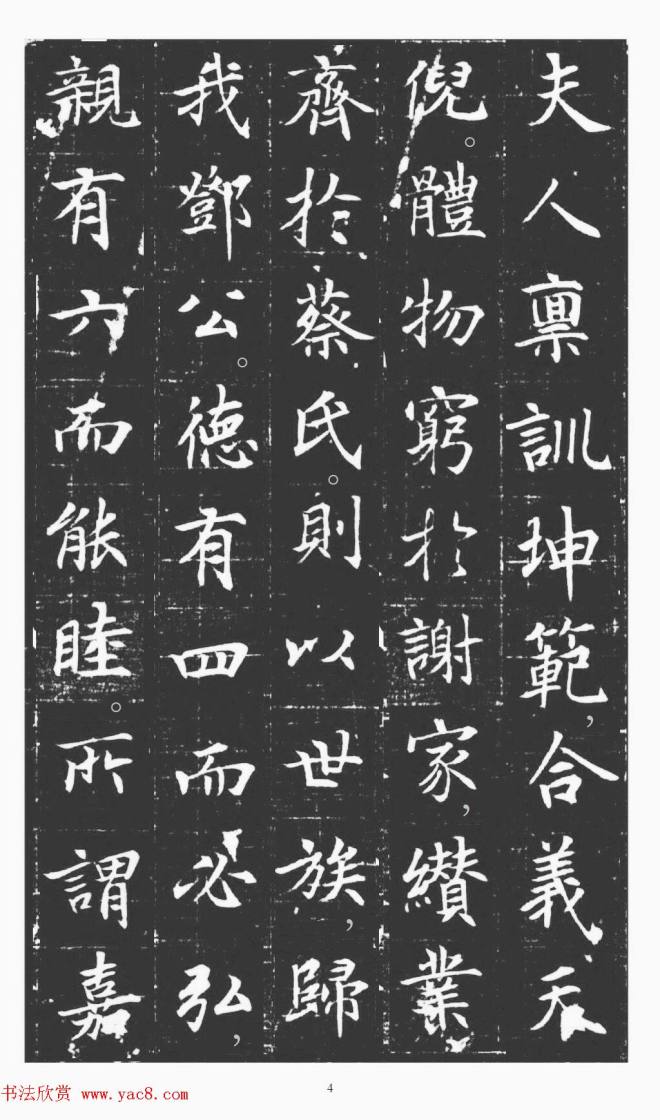 夫人稟訓坤範，合義天
倪。體物窮於謝家，纘業
齊於蔡氏。則以世族，歸
我鄧公。德有四而必弘，
親有六而能睦。所謂嘉
4
书法欣赏 www.yac8.com